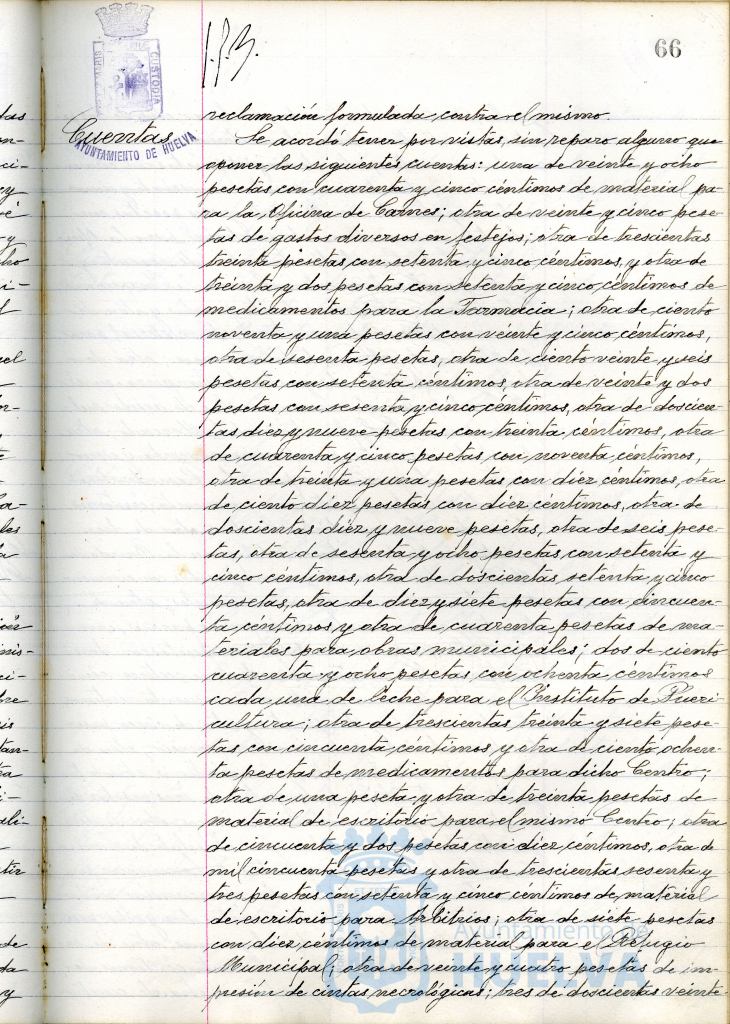 66
reclamación formulada contra el mismo.
Cuentas
AYUNTAMIENTO DE HUELVA
CUSTODIA
Se acordó tener por vistas, sin reparo alguno que
oponer las siguientes cuentas: una de veinte y ocho
pesetas con cuarenta y cinco céntimos de material pa-
ra la Oficina de Carnes; otra de veinte y cinco pese-
tas de gastos diversos en festejos; otra de trescientas
treinta pesetas con setenta y cinco céntimos, y otra de
treinta y dos pesetas con setenta y cinco céntimos de
medicamentos para la Farmacia; otra de ciento
noventa y una pesetas con veinte y cinco céntimos,
otra de sesenta pesetas, otra de ciento veinte y seis
pesetas con setenta céntimos, otra de veinte y dos
pesetas con sesenta y cinco céntimos, otra de doscien-
tas diez y nueve pesetas con treinta céntimos, otra
de cuarenta y cinco pesetas con noventa céntimos,
otra de treinta y una pesetas con diez céntimos, otra
de ciento diez pesetas con diez céntimos, otra de
doscientas diez y nueve pesetas, otra de seis pese-
tas, otra de sesenta y ocho pesetas con setenta y
cinco céntimos, otra de doscientas setenta y cinco
pesetas, otra de diez y siete pesetas con cincuen-
ta céntimos y otra de cuarenta pesetas de ma-
teriales para obras municipales; dos de ciento
cuarenta y ocho pesetas con ochenta céntimos
cada una de leche para el Instituto de Pueri-
cultura; otra de trescientas treinta y siete pese-
tas con cincuenta céntimos y otra de ciento ochen-
ta pesetas de medicamentos para dicho Centro;
otra de una peseta y otra de treinta pesetas de
material de escritorio para el mismo Centro; otra
de cincuenta y dos pesetas con diez céntimos, otra de
mil cincuenta pesetas y otra de trescientas sesenta y
tres pesetas con setenta y cinco céntimos de material
de escritorio para Arbitrios; otra de siete pesetas
con diez céntimos de material para el Refugio
Municipal; otra de veinte y cuatro pesetas de im-
presión de cintas necrológicas; tres de doscientas veinte
Ayuntamiento de
HUELVA